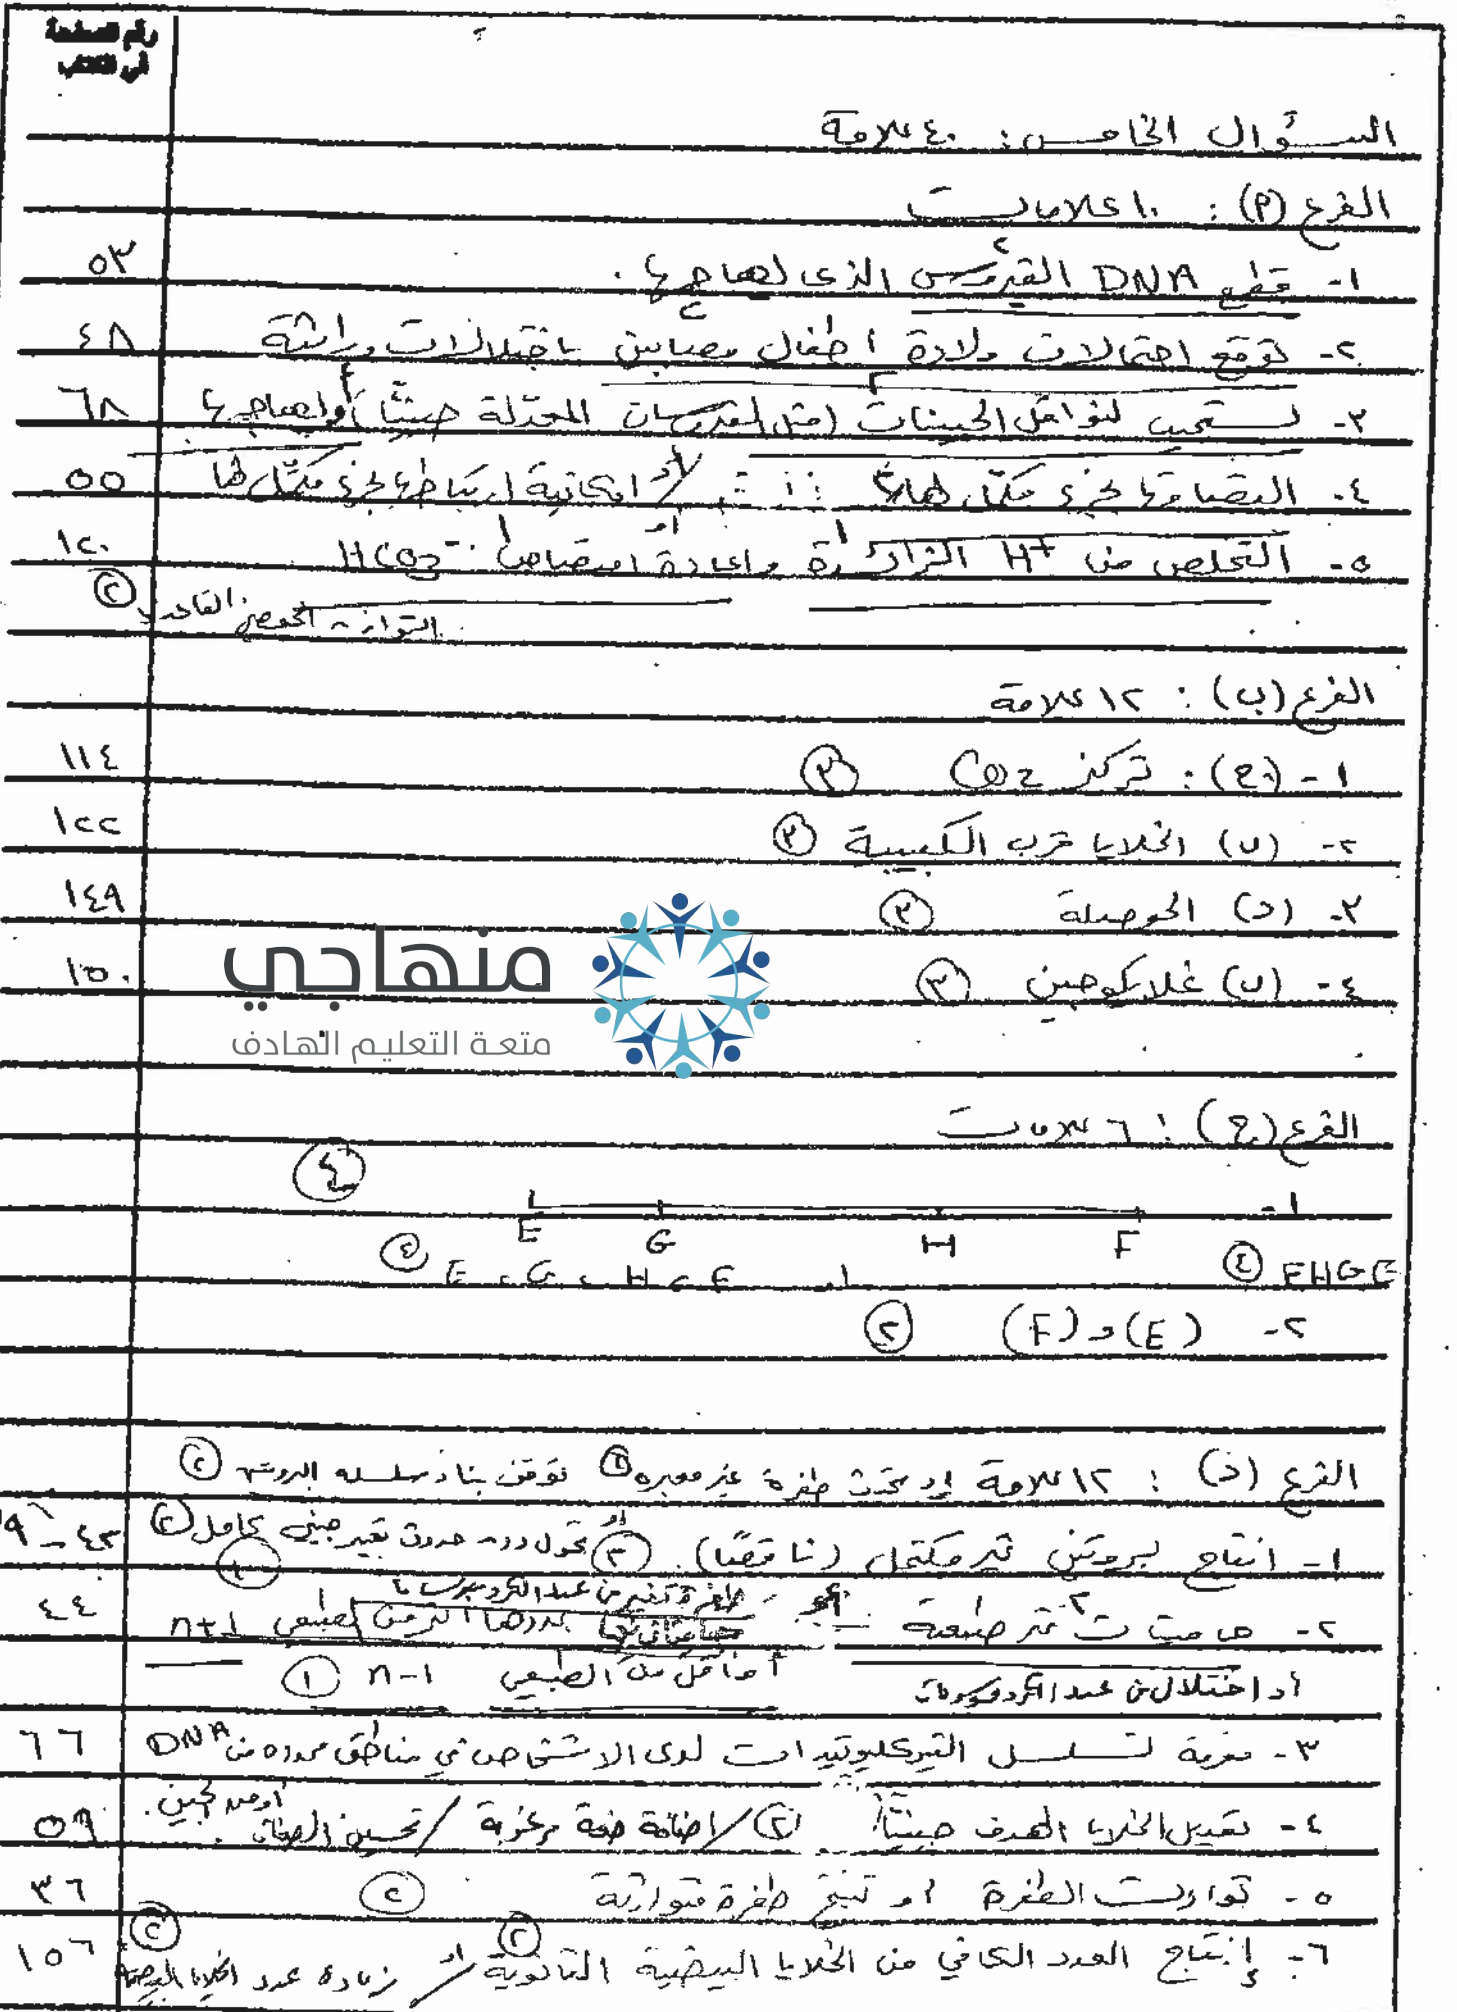 رقم الصفحة
في الكتاب
السؤال الخامس: ٤٠ علامة
الفرع (أ): ١٠ علامات
١- قطع DNA الفيروس الذي يهاجمها. ٥٣
٢- توقع احتمالات ولادة أطفال مصابين باختلالات وراثية ٤٨
٣- تستجيب لنواقل الجينات (مثل الفيروسات المعدّلة جينيًّا) أو يهاجمها ٦٨
٤- التصاقها بجزء مكمّل لها / أو إمكانية ارتباطها بجزء مكمّل لها ٥٥
٥- التخلص من H+ الزائدة أو وإعادة امتصاص HCO3- ١٢٠
التوازن الحمضي القاعدي ٢
الفرع (ب): ١٢ علامة
١- (ج): تركيز CO2 ٣ ١١٤
٢- (ب) الخلايا قرب الكبيبية ٣ ١٢٢
٣- (د) الحوصلة ٣ ١٤٩
منهاجي
٤- (ب) غلايكوجين ٣ ١٥٠
متعة التعليم الهادف
الفرع (ج): ٦ علامات
١- ٤
E G H F
FHGE ٤ أو E ، G ، H ، F ٤
٢- (E) و (F) ٢
الفرع (د): ١٢ علامة أو تحدث طفرة غير معبرة ٢ توقف بناء سلسلة البروتين ٢
١- إنتاج بروتين غير مكتمل (ناقصًا). ٣ أو تحول دون حدوث تعبير جيني كامل ٢ ٤٣
٢- جاميتات غير طبيعية طفرة تغير في عدد الكروموسومات
عددها أكثر من الطبيعي n+1 ٤٤
أو اختلال في عدد الكروموسومات أو أقل من الطبيعي n-1 ١
٣- معرفة تسلسل النيوكليوتيدات لدى الأشخاص في مناطق محددة من DNA ٦٦
أو من الجين.
٤- تعديل الخلايا الهدف جينيًّا ٢ / إضافة صفة مرغوبة / تحسين الصفات. ٥٩
٥- توارث الطفرة أو تنتج طفرة متوارثة ٢ ٣٦
٦- إنتاج العدد الكافي من الخلايا البيضية الثانوية ٢ / أو زيادة عدد الخلايا البيضية ٢ ١٥٦